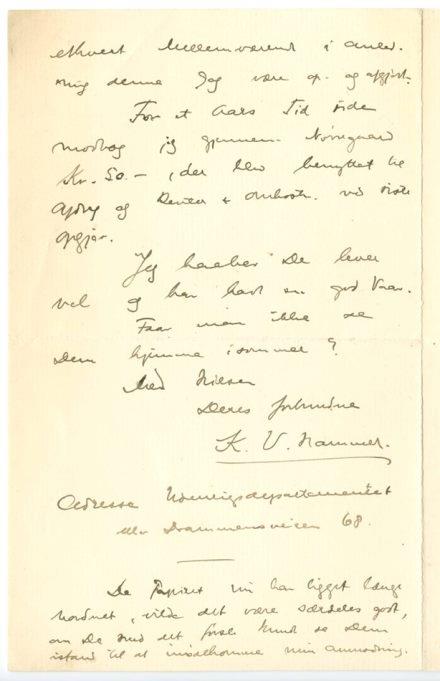 ethvert Mellemværende i anled-
ning denne Sag være op- og afgjort.
For et Aars Tid siden
modtog jeg gjennem Nørregaard
Kr. 50.-, der blev benyttet til
Afdrag og Renter & Omkostn. ved sidste
Opgjør.
Jeg haaber De lever
vel og har havt en god Vaar.
Faar man ikke se
Dem hjemme isommer?
Med Hilsen
Deres forbundne
K. V. Hammer.
Adresse Utenrigsdepartementet
eller Drammensveien 68.
Da Papiret nu har ligget længe
uordnet, vilde det være særdeles godt,
om De med det første kunde se Dem
istand til at imødekomme min Anmodning.